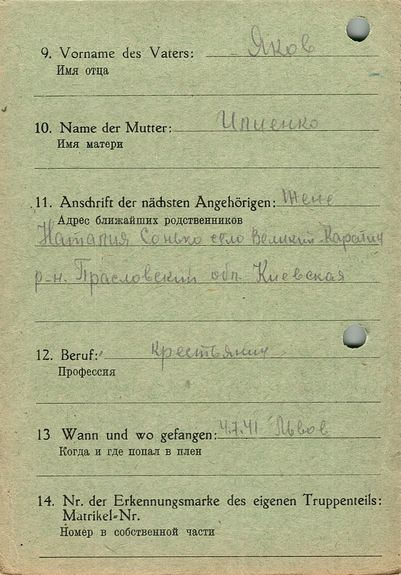 9. Vorname des Vaters: Яков
Имя отца
10. Name der Mutter: Ильенко
Имя матери
11. Anschrift der nächsten Angehörigen: жене
Адрес ближайших родственников
Наталия Сонько село Великий-Каратин
р-н. Прасловский обл. Киевская
12. Beruf: Крестьянин
Профессия
13 Wann und wo gefangen: 4.7.41 Львов
Когда и где попал в плен
14. Nr. der Erkennungsmarke des eigenen Truppenteils:
Matrikel-Nr.
Номер в собственной части